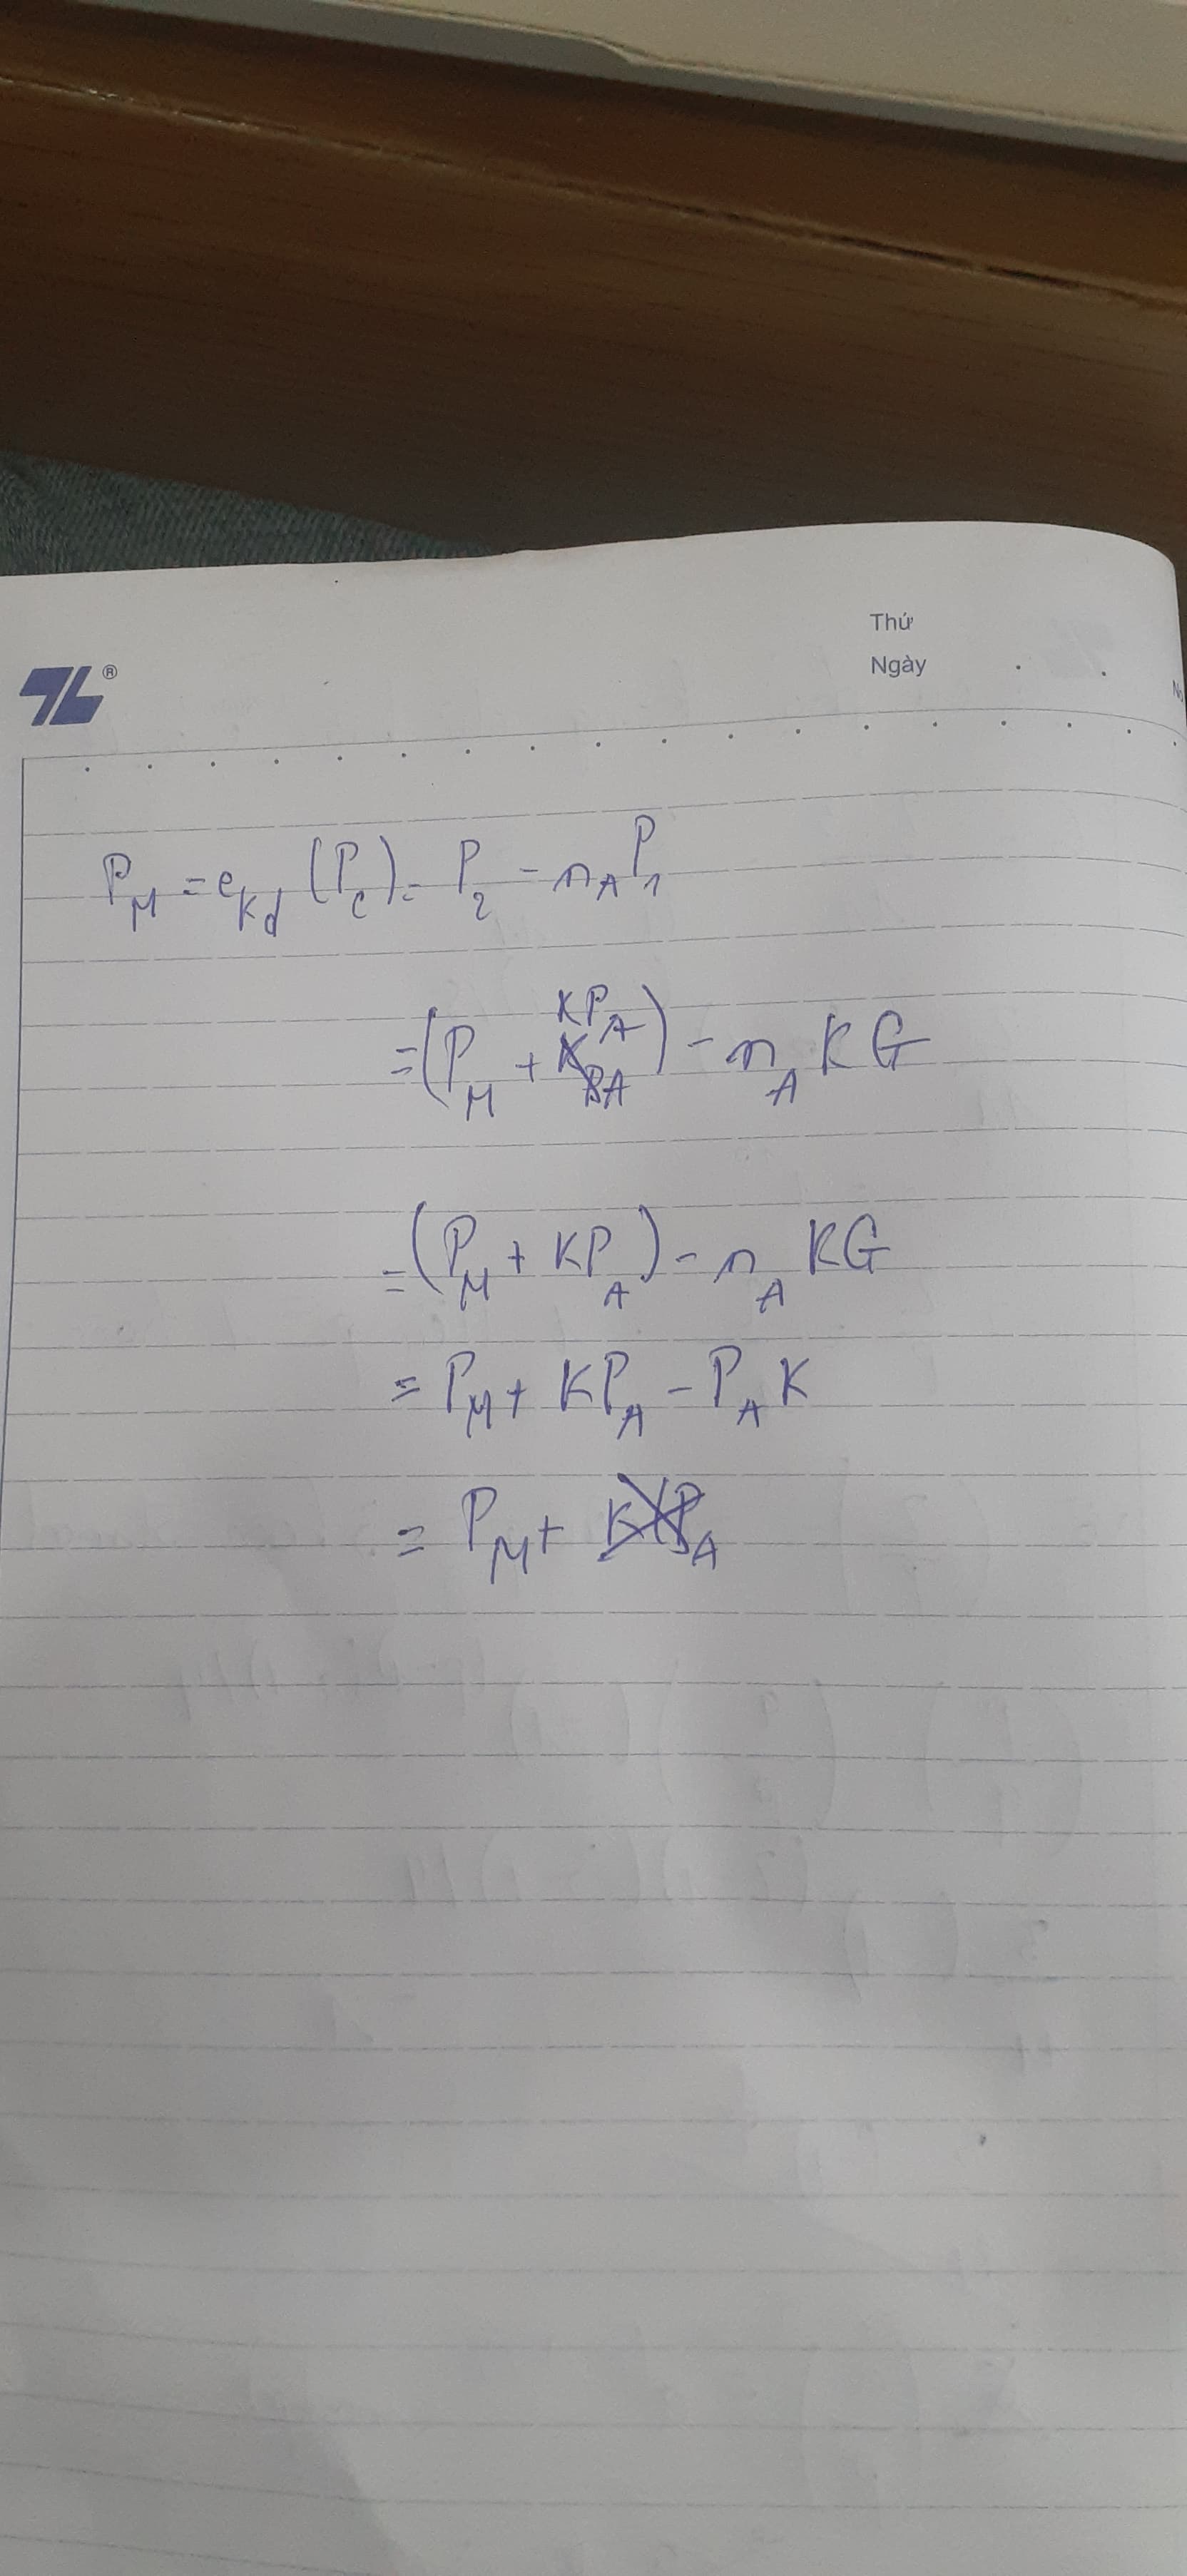 Thứ
Ngày
P_M = e_Kd (P_C) = P_2 - n_A P_1
= (P_M + KP_A) - n_A KG
= (P_M + KP_A) - n_A KG
= P_M + KP_A - P_A K
= P_M +